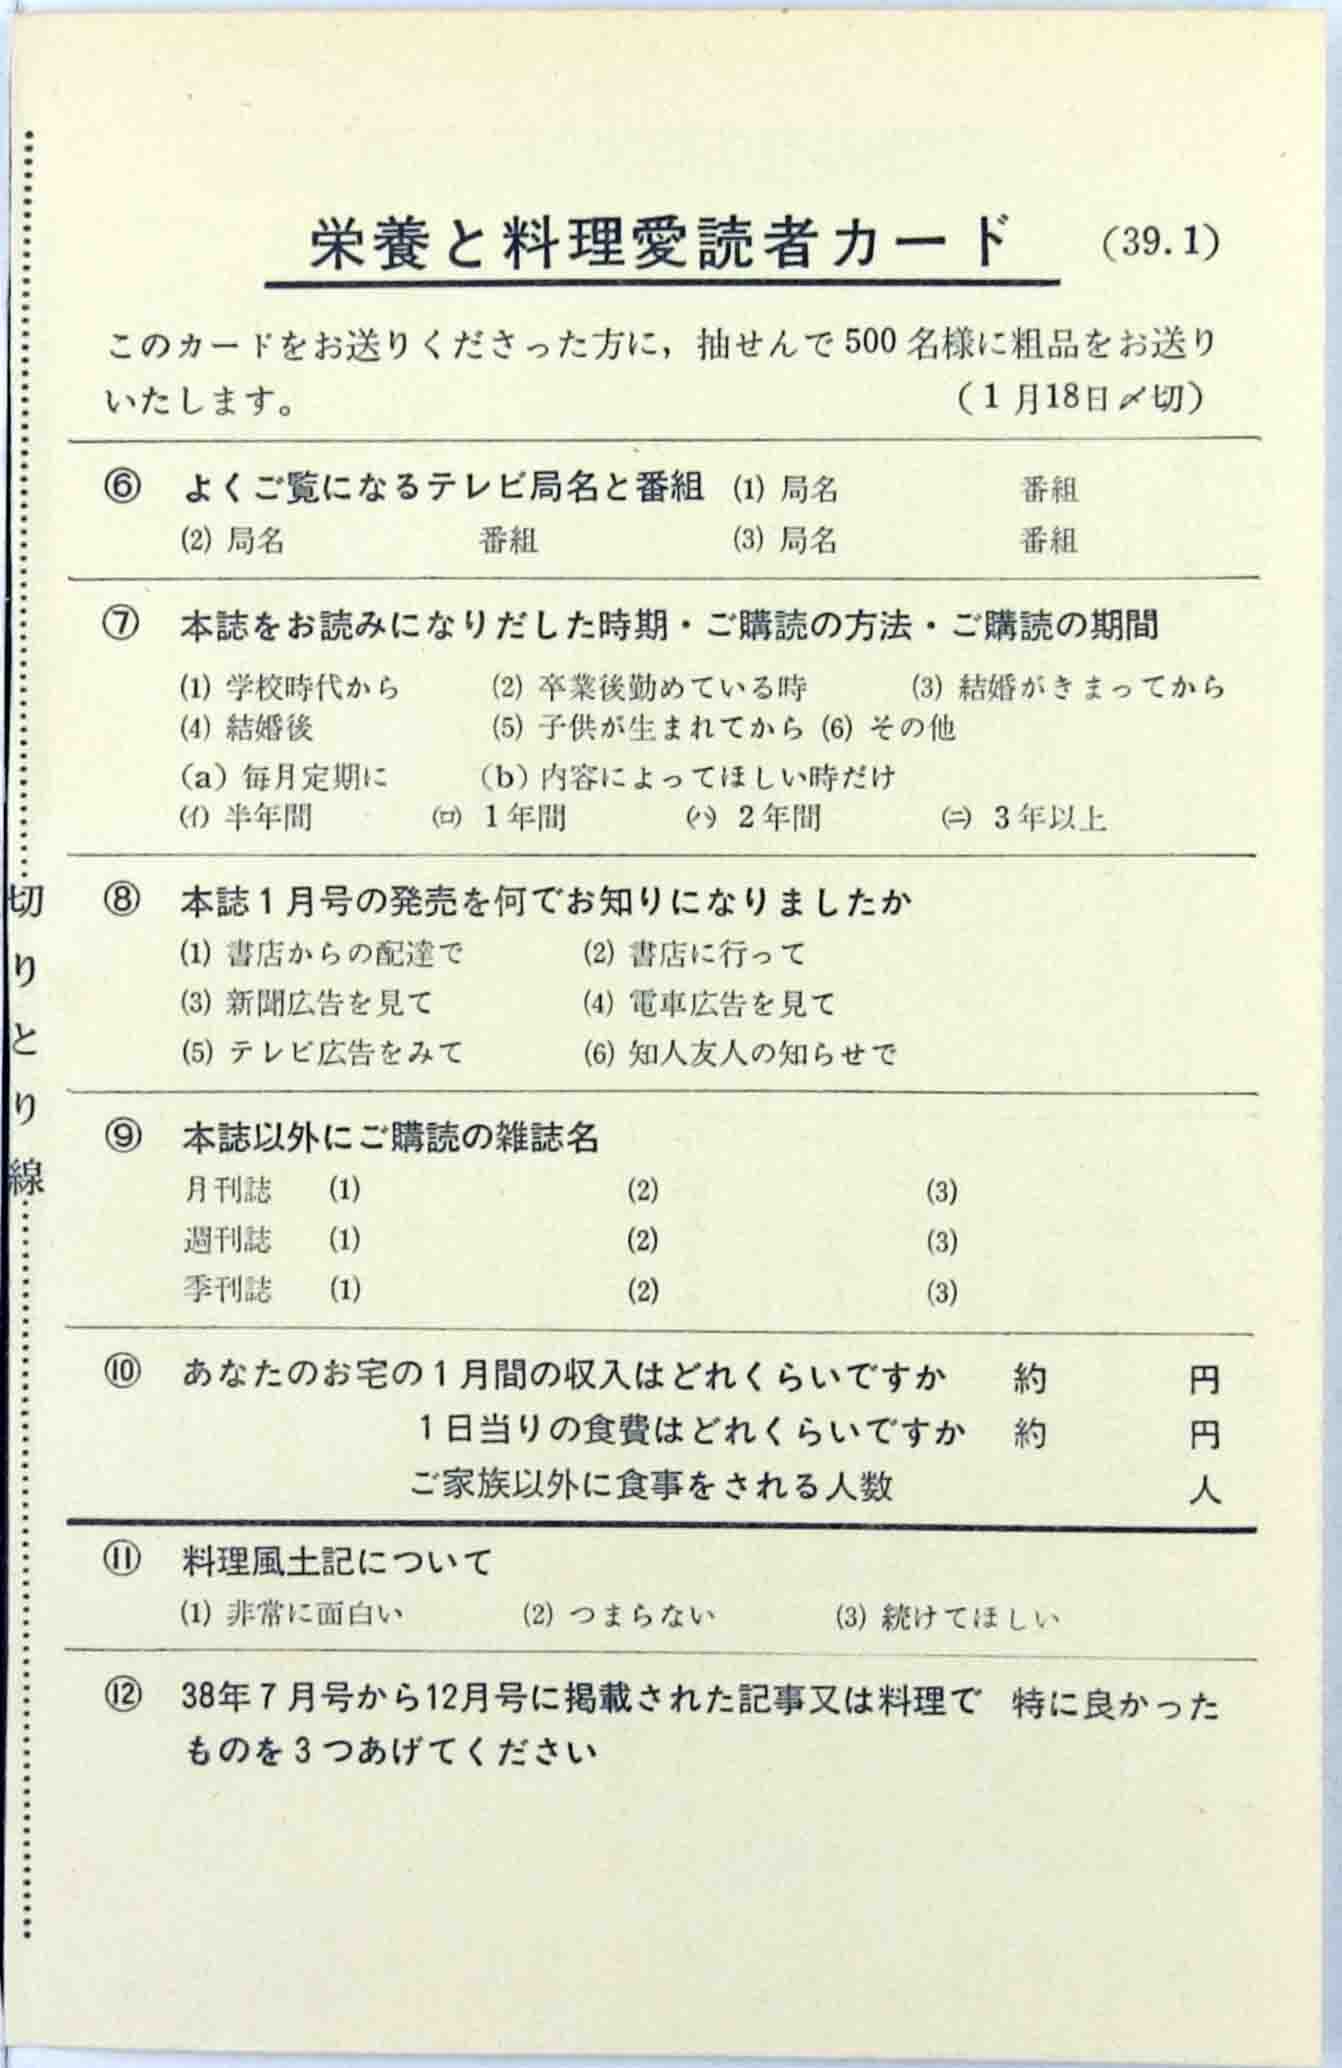 栄養と料理愛読者カード (39.1)
このカードをお送りくださった方に，抽せんで500名様に粗品をお送り
いたします。 （1月18日〆切）
⑥ よくご覧になるテレビ局名と番組 (1) 局名 番組
(2) 局名 番組 (3) 局名 番組
⑦ 本誌をお読みになりだした時期・ご購読の方法・ご購読の期間
(1) 学校時代から (2) 卒業後勤めている時 (3) 結婚がきまってから
(4) 結婚後 (5) 子供が生まれてから (6) その他
(a) 毎月定期に (b) 内容によってほしい時だけ
(イ) 半年間 (ロ) 1年間 (ハ) 2年間 (ニ) 3年以上
⑧ 本誌1月号の発売を何でお知りになりましたか
(1) 書店からの配達で (2) 書店に行って
(3) 新聞広告を見て (4) 電車広告を見て
(5) テレビ広告をみて (6) 知人友人の知らせで
⑨ 本誌以外にご購読の雑誌名
月刊誌 (1) (2) (3)
週刊誌 (1) (2) (3)
季刊誌 (1) (2) (3)
⑩ あなたのお宅の1月間の収入はどれくらいですか 約 円
1日当りの食費はどれくらいですか 約 円
ご家族以外に食事をされる人数 人
⑪ 料理風土記について
(1) 非常に面白い (2) つまらない (3) 続けてほしい
⑫ 38年7月号から12月号に掲載された記事又は料理で 特に良かった
ものを3つあげてください
切りとり線